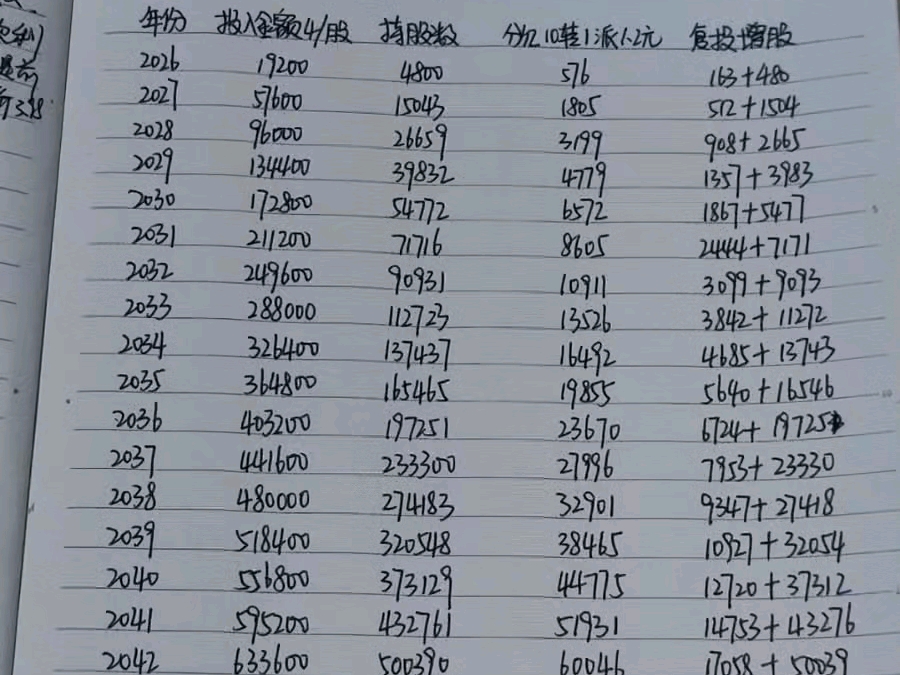 年份 投入金额4/股 持股数 分红10转1派1.2元 复投增股
2026 19200 4800 576 163+480
2027 57600 15043 1805 512+1504
2028 96000 26659 3199 908+2665
2029 134400 39832 4779 1357+3983
2030 172800 54772 6572 1867+5477
2031 211200 71716 8605 2444+7171
2032 249600 90931 10911 3099+9093
2033 288000 112723 13526 3842+11272
2034 326400 137437 16492 4685+13743
2035 364800 165465 19855 5640+16546
2036 403200 197251 23670 6724+19725
2037 441600 233300 27996 7953+23330
2038 480000 274183 32901 9347+27418
2039 518400 320548 38465 10927+32054
2040 556800 373129 44775 12720+37312
2041 595200 432761 51931 14753+43276
2042 633600 500390 60046 17058+50039